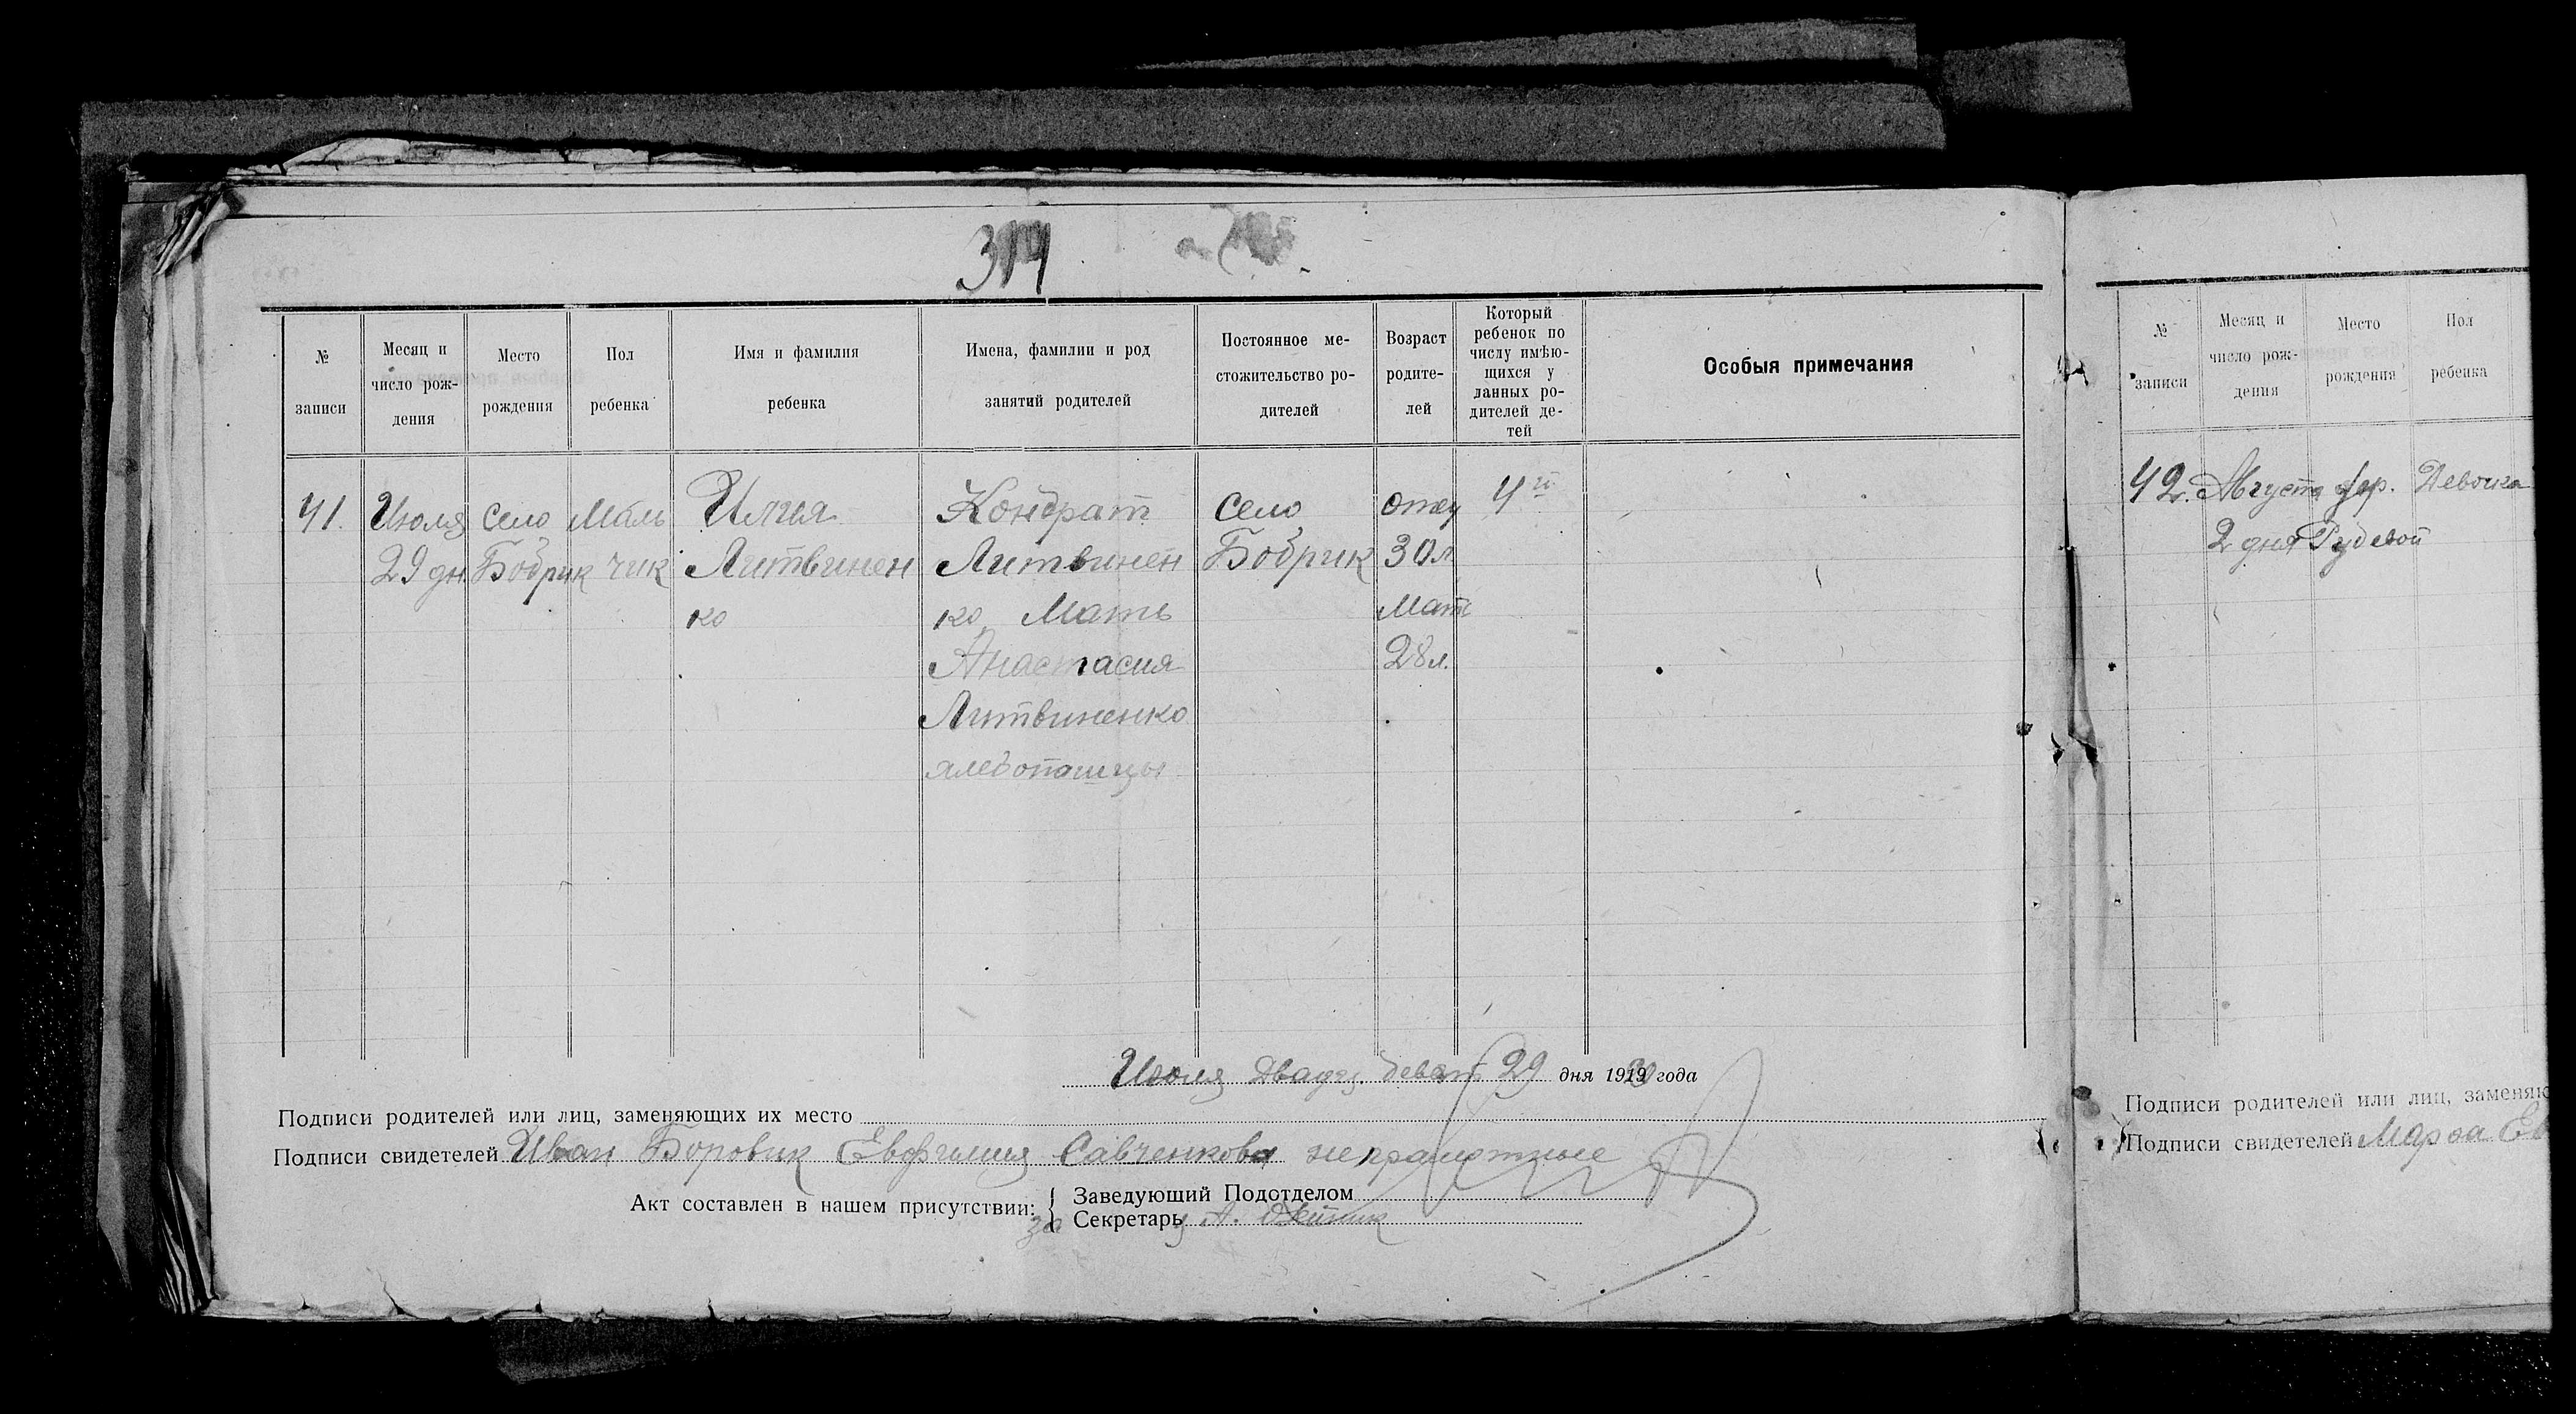 319
№ записи
Месяц и число рождения
Место рождения
Пол ребенка
Имя и фамилия ребенка
Имена, фамилии и род занятий родителей
Постоянное местожительство родителей
Возраст родителей
Который ребенок по числу имѣющихся у данных родителей детей
Особыя примечания
41. Июля село Маль Илия Кондрат село отец 4й
29 дн Бобрик чик Литвинен Литвинен Бобрик 30 л
ко ко Мать Мать
Анастасия 28 л.
Литвиненко
хлебопашцы
Июля Двадц. девят 29 дня 1920 года
Подписи родителей или лиц, заменяющих их место
Подписи свидетелей Иван Боровик Евфимия Савченкова неграмотные
Акт составлен в нашем присутствии:
Заведующий Подотделом
за Секретаря А.
№ записи
Месяц и число рождения
Место рождения
Пол ребенка
42. Августа хут. Девочка
2 дня
Подписи родителей или лиц, заменяю
Подписи свидетелей Марфа Ев